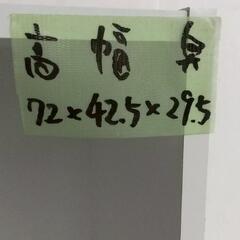 高 幅 奥
72×42.5×29.5